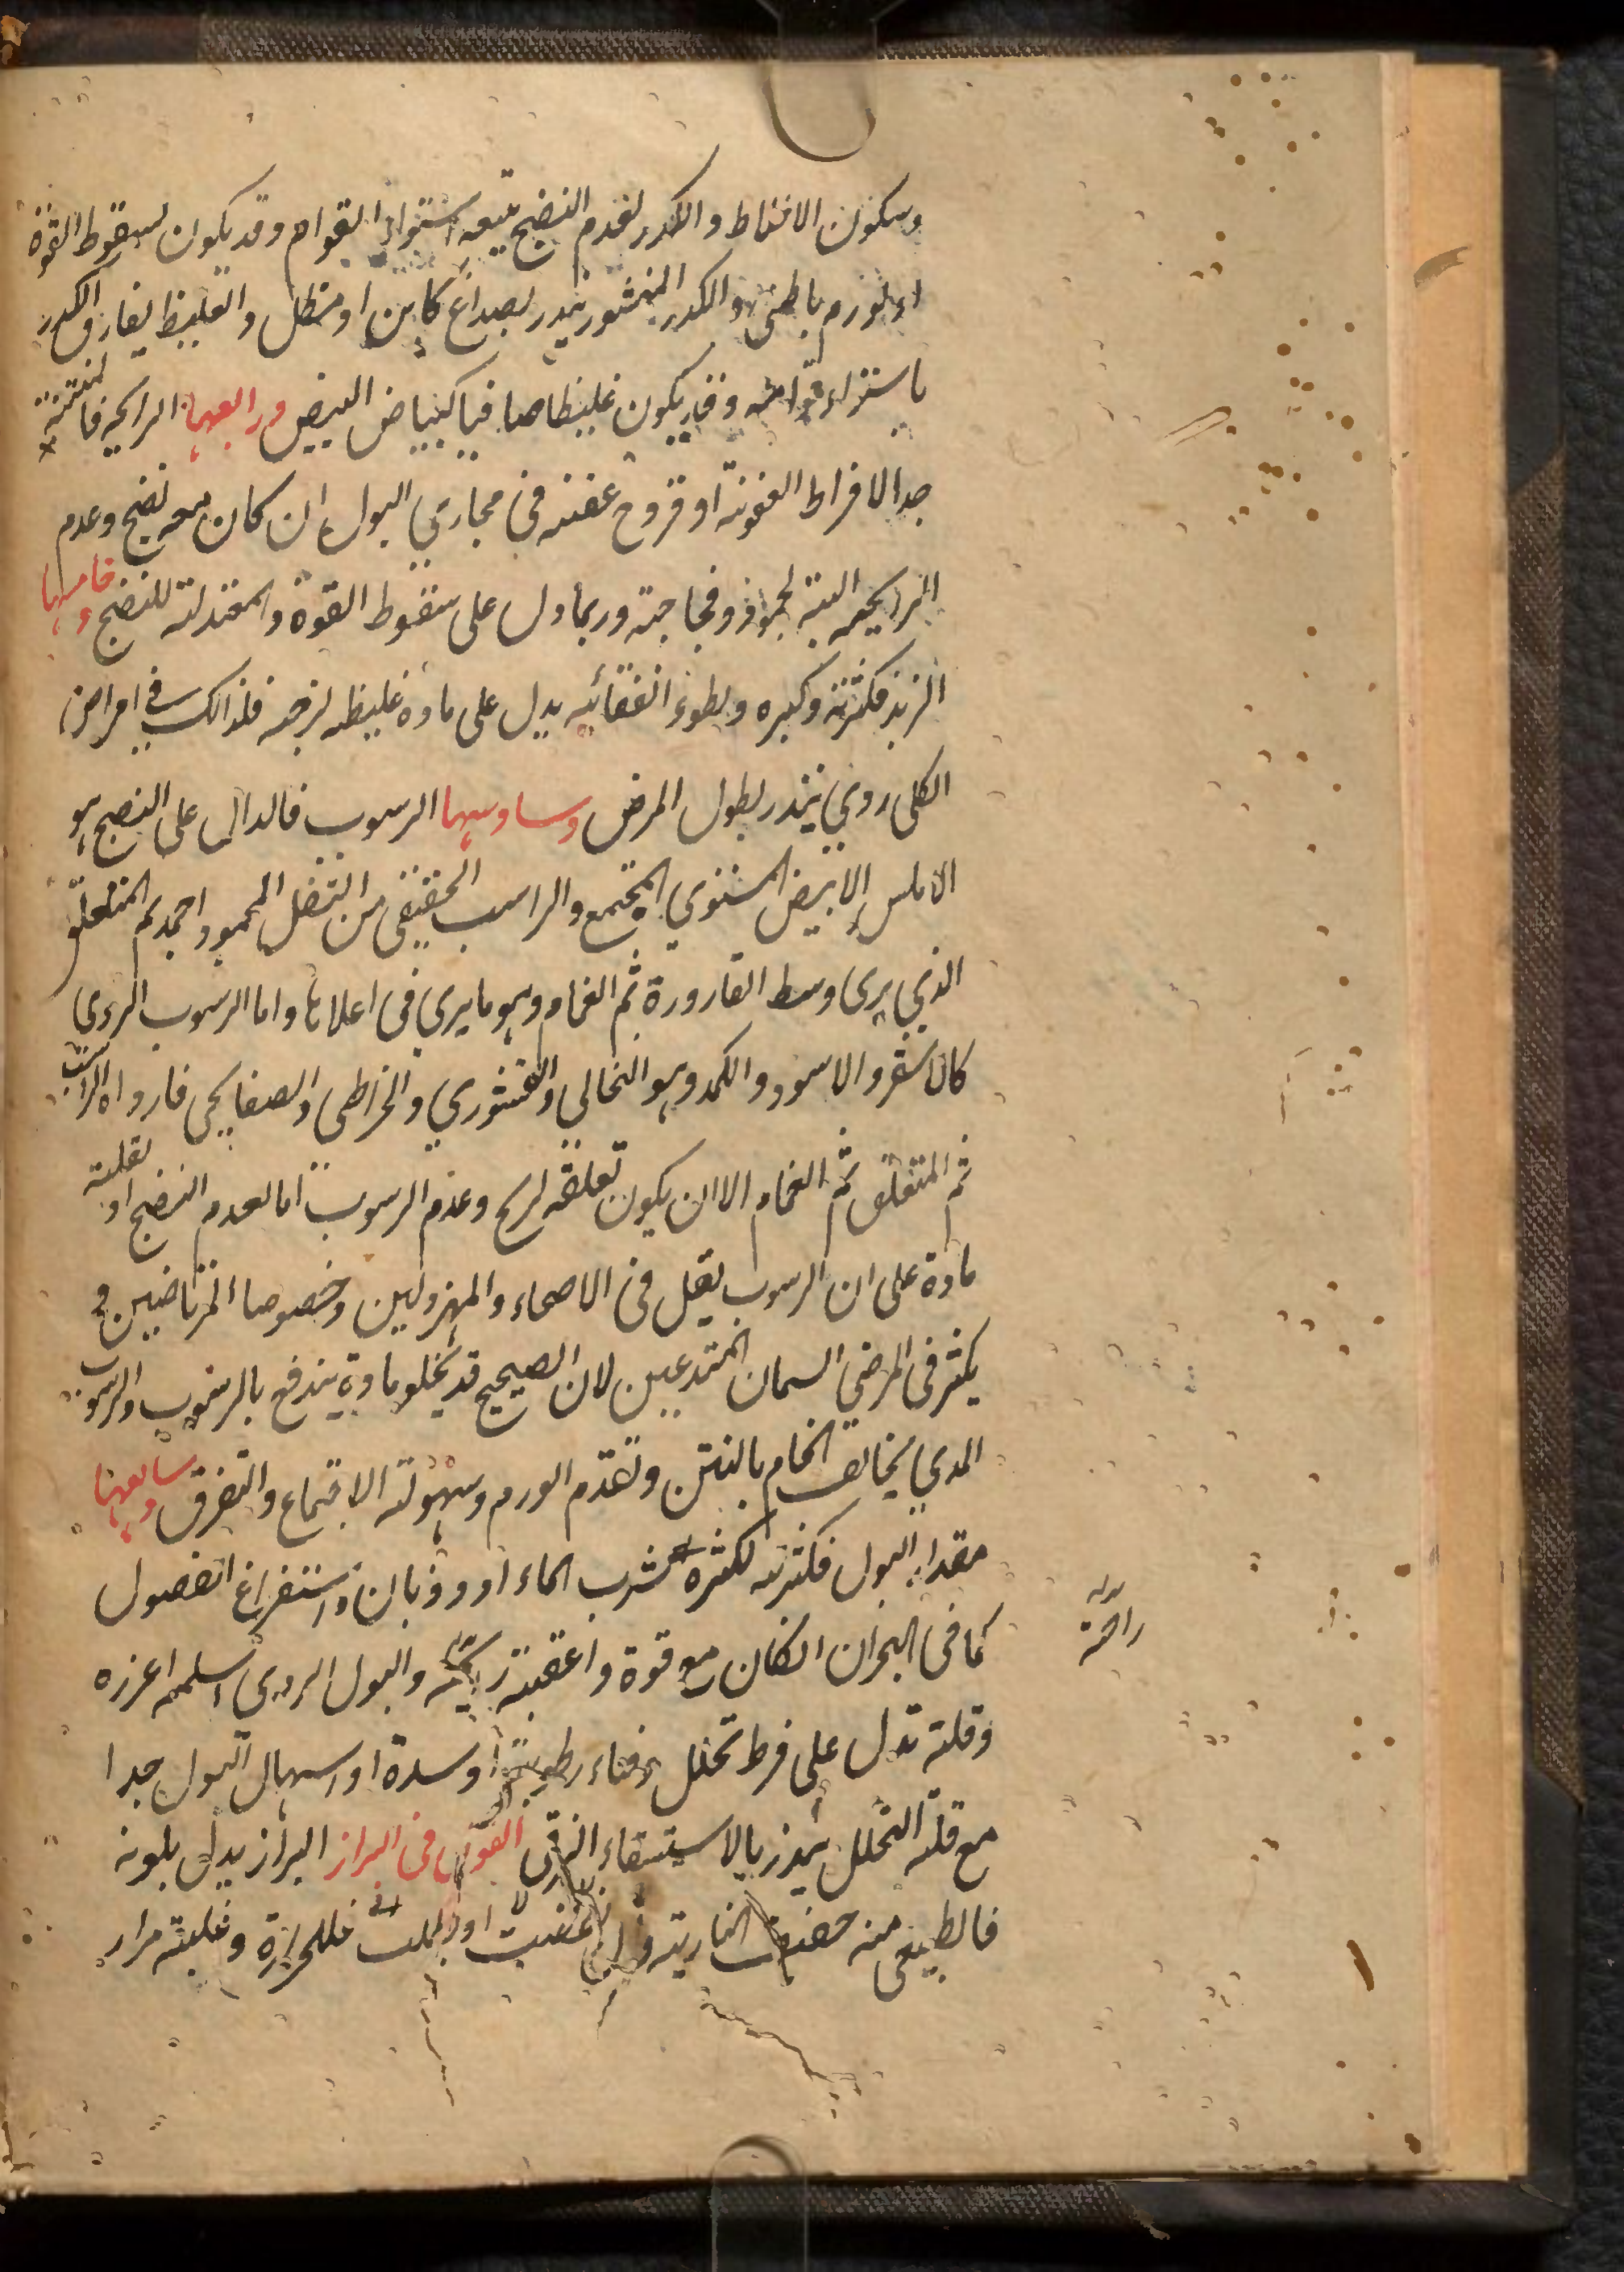 وسكون الاختلاط والكدر لعدم النضج يتبعه استواء القوام وقد يكون لسقوط القوة
او لورم باطنى والكدر المنثور ينذر بصداع كاين او مطل والغليظ يفارق الكدر
باستواء قوامه وقد يكون غليظا صافيا كبياض البيض ورابعها الرايحه فالمنتنة
جدا لافراط العفونة او قروح عفنه فى مجارى البول ان كان معه نضج وعدم
الرايحه البتة لجمود وفجاجته وربما دل على سقوط القوة والمعتدلته للنضج وخامسها
الزبد فكثرته وكبره وبطوء انفقائيه يدل على مادة غليظه لزجه فلذالك فى امراض
الكلى ردى ينذر بطول المرض وسادسها الرسوب فالدال على النضج هو
الاملس الابيض المستوى المجتمع والراسب الحقيقى من الثفل المحمود احمد ثم المتعلق
الذى يرى وسط القارورة ثم الغمام وهو ما يرى فى اعلاها واما الرسوب الردى
كالاشقر والاسود والكمد وهو النخالى والقشورى والخراطى والصفايحى فارداه الراسب
ثم المتعلق ثم الغمام الا ان يكون تعلقه لريح وعدم الرسوب اما لعدم النضج او لقلته
مادة على ان الرسوب يقل فى الاصحاء والمهزولين وخصوصا المرتاضين و
يكثر فى المرضى السمان المتدعين لان الصحيح قد يخلو مادة يندفع بالرسوب والرسوب
المدى يخالف الخام بالنتن وتقدم الورم وسهولته الاجتماع والتفرق وسابعها
مقدار البول فكثرته لكثرة شرب الماء او ذوبان واستفراغ الفضول
كما فى البحران انكان مع قوة واعقبته والبول الردى اسلمه اغزره
راحة
وقلته تدل على فرط تحلل وفناء رطوبة او سدة او اسهال البول جدا
مع قلة التحلل ينذر بالاستسقاء الزقى القول فى البراز البراز يدل بلونه
فالطبيعى منه خفيف النارية وان او فللحرارة وغلبته مرار